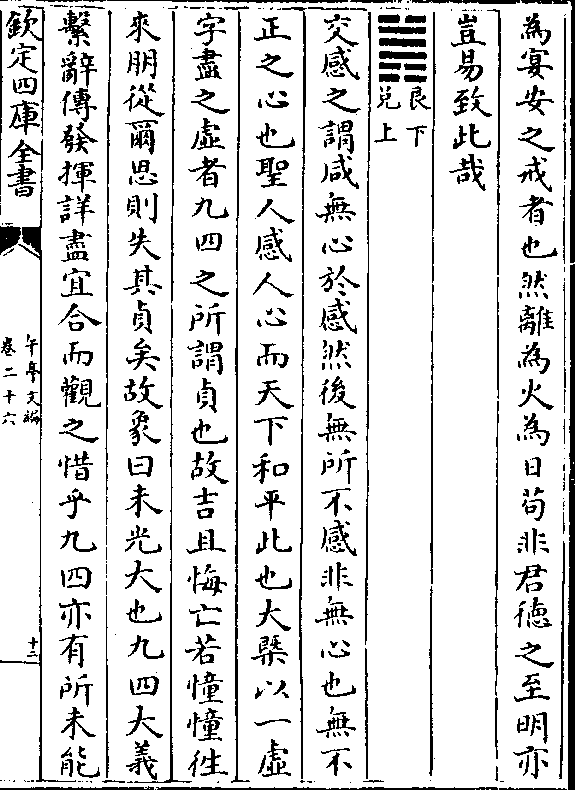 為宴安之戒者也然離為火為日苟非君德之至明亦
豈易致此哉
艮下
兌上
交感之謂咸無心於感然後無所不感非無心也無不
正之心也聖人感人心而天下和平此也大槩以一虛
字盡之虛者九四之所謂貞也故吉且悔亡若憧憧徃
來朋從爾思則失其貞矣故象曰未光大也九四大義
繫辭傳發揮詳盡宜合而觀之惜乎九四亦有所未能
欽定四庫全書
午亭文編
卷二十六
十三